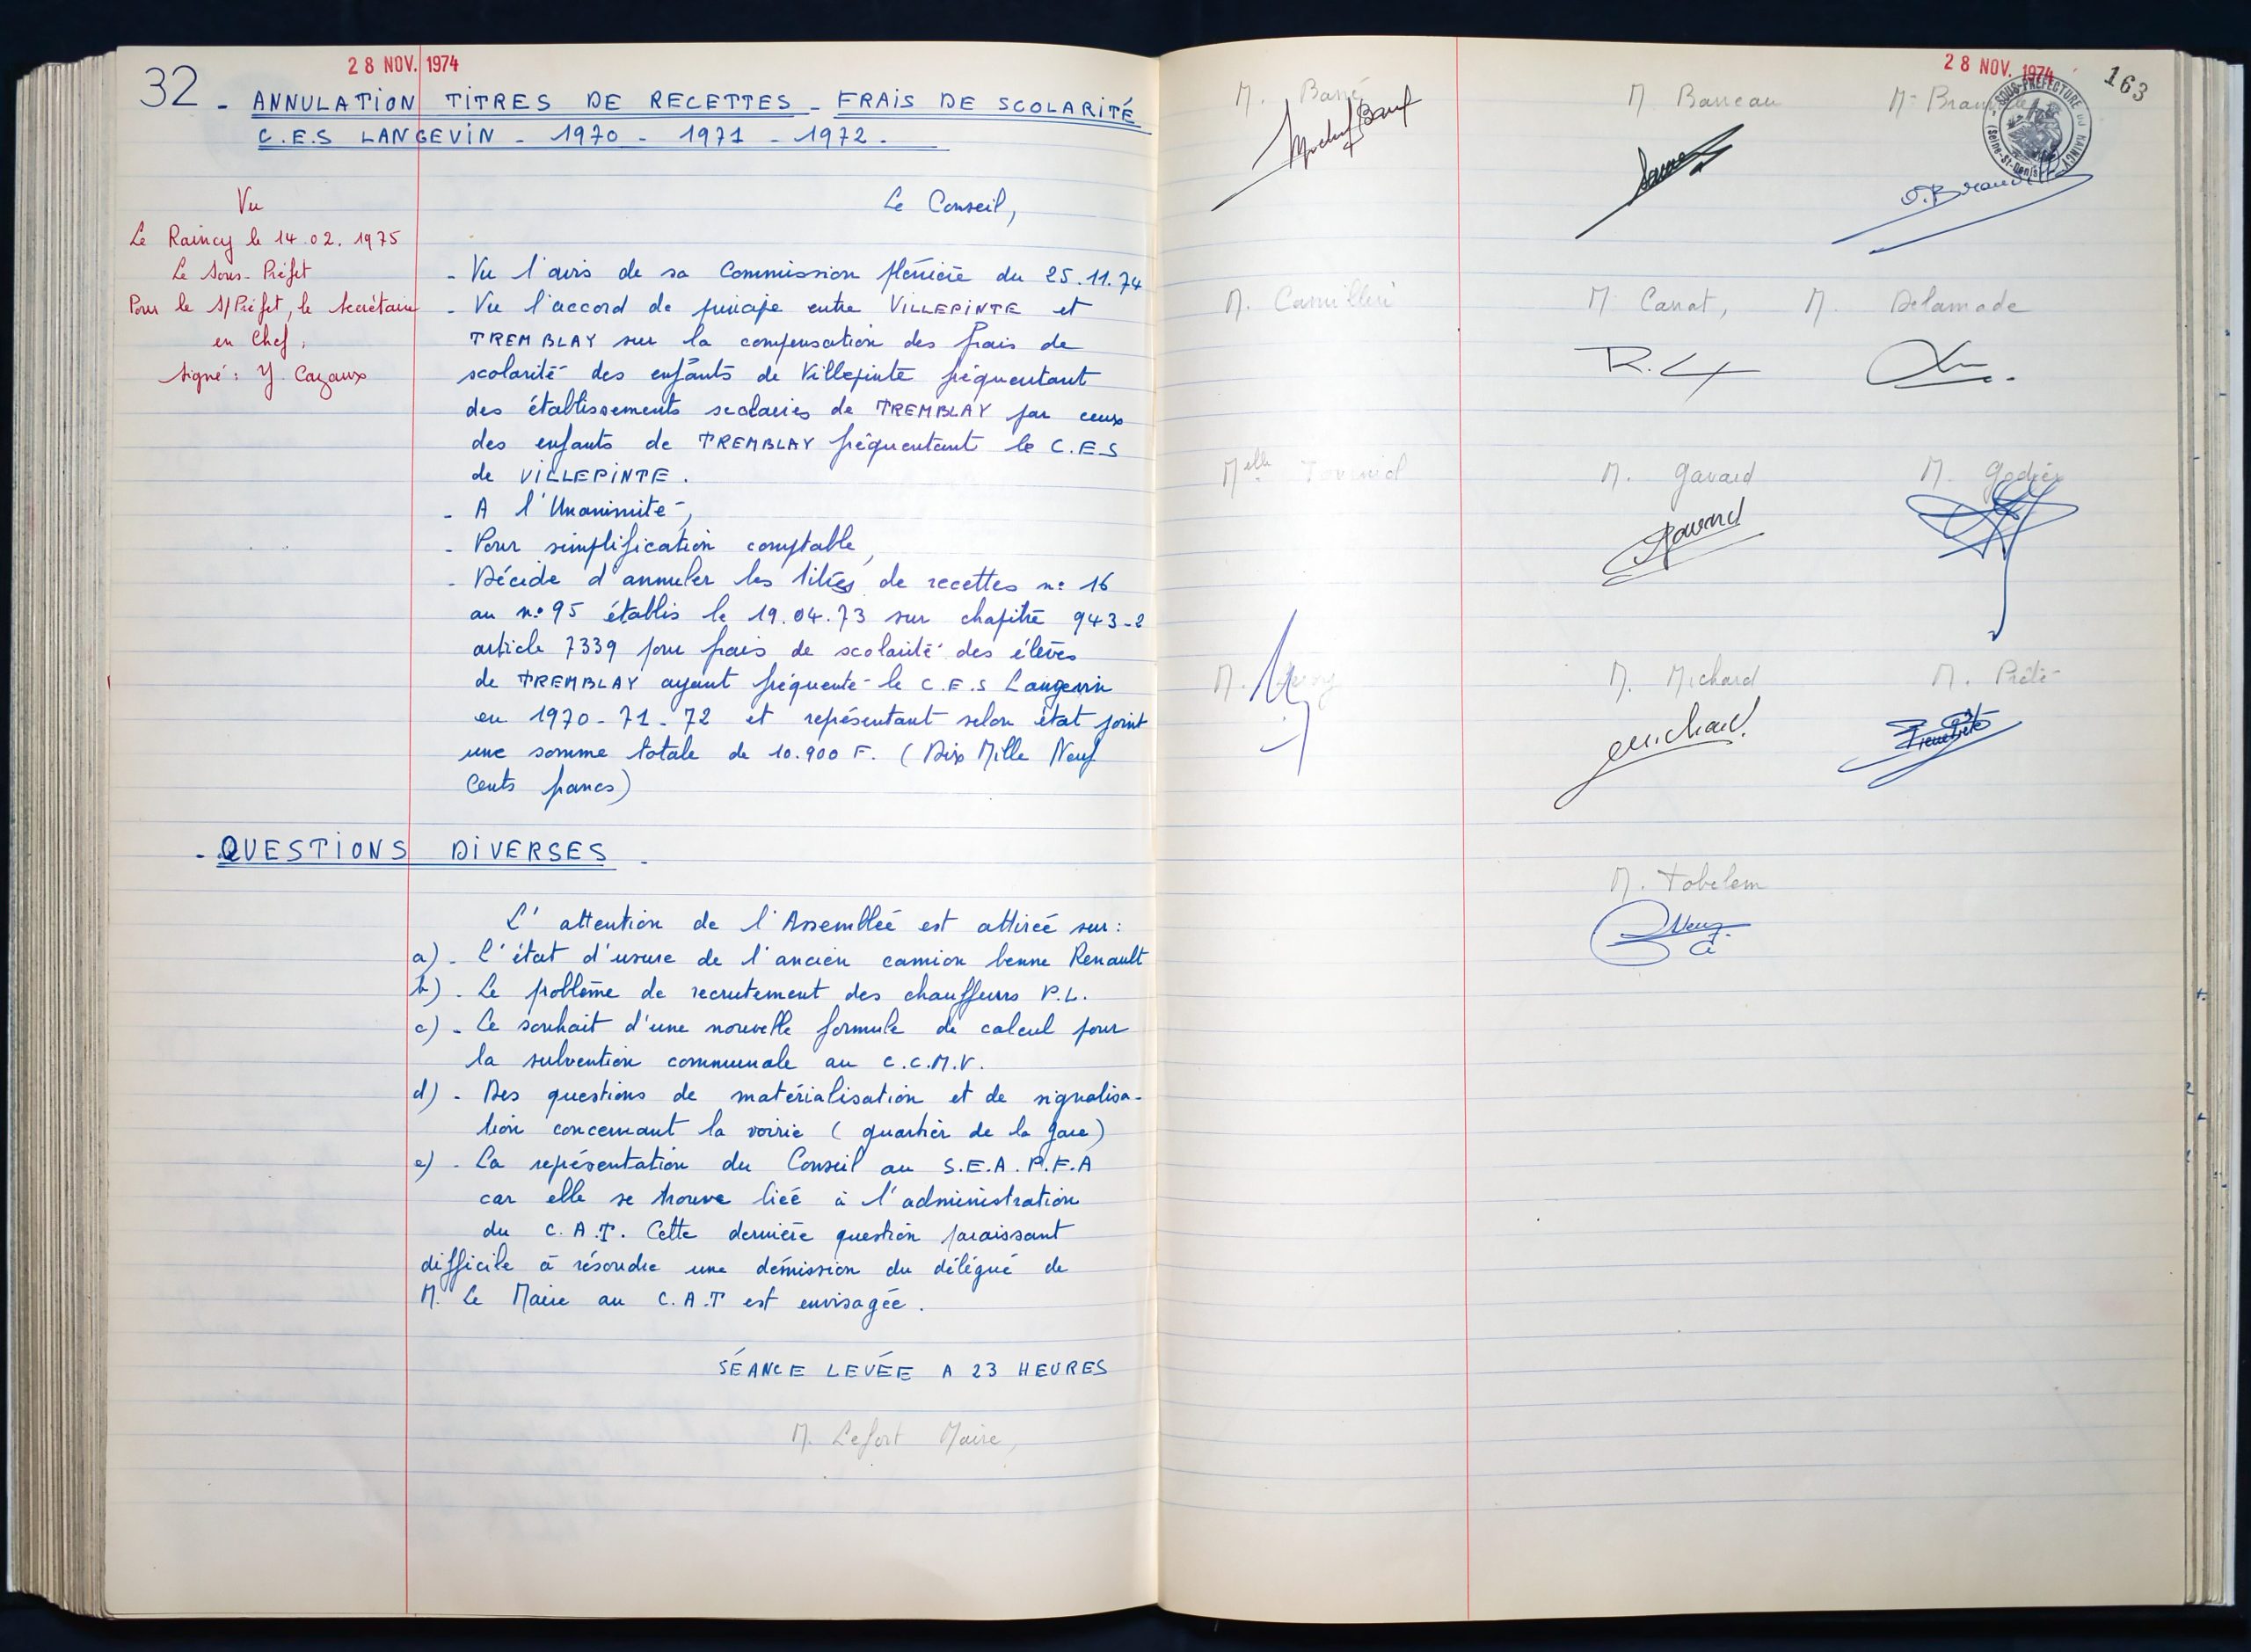 28 NOV. 1974
32 - ANNULATION TITRES DE RECETTES - FRAIS DE SCOLARITÉ
C.E.S LANGEVIN - 1970 - 1971 - 1972.
Vu
Le Raincy le 14.02.1975
Le Sous-Préfet
Pour le S/Préfet, le Secrétaire
en Chef,
signé: Y. Cazaux
Le Conseil,
- Vu l'avis de sa Commission plénière du 25.11.74
- Vu l'accord de principe entre VILLEPINTE et
TREMBLAY sur la compensation des frais de
scolarité des enfants de Villepinte fréquentant
des établissements scolaires de TREMBLAY par ceux
des enfants de TREMBLAY fréquentant le C.E.S
de VILLEPINTE.
- A l'Unanimité,
- Pour simplification comptable,
- Décide d'annuler les titres de recettes n° 16
au n° 95 établis le 19.04.73 sur chapitre 943-2
article 7339 pour frais de scolarité des élèves
de TREMBLAY ayant fréquenté le C.E.S Langevin
en 1970-71-72 et représentant selon état joint
une somme totale de 10.900 F. (Dix Mille Neuf
Cents francs)
- QUESTIONS DIVERSES -
L'attention de l'Assemblée est attirée sur:
a) - L'état d'usure de l'ancien camion benne Renault
b) - Le problème de recrutement des chauffeurs P.L.
c) - Le souhait d'une nouvelle formule de calcul pour
la subvention communale au C.C.M.V.
d) - Des questions de matérialisation et de signalisa-
tion concernant la voirie (quartier de la gare)
e) - La représentation du Conseil au S.E.A.P.F.A
car elle se trouve liée à l'administration
du C.A.T. Cette dernière question paraissant
difficile à résoudre une démission du délégué de
M. Le Maire au C.A.T est envisagée.
SÉANCE LEVÉE A 23 HEURES
M. Lefort Maire,
28 NOV. 1974
163
SOUS-PRÉFECTURE DU RAINCY
(Seine-St-Denis)
M. Barré M Barreau
M. Camilleri M. Canat, M. Delamade
R.C
Melle M. Gavard M. Godier
Gavard
M. M. Michard M. Prêté
Michard
M. Tobelem